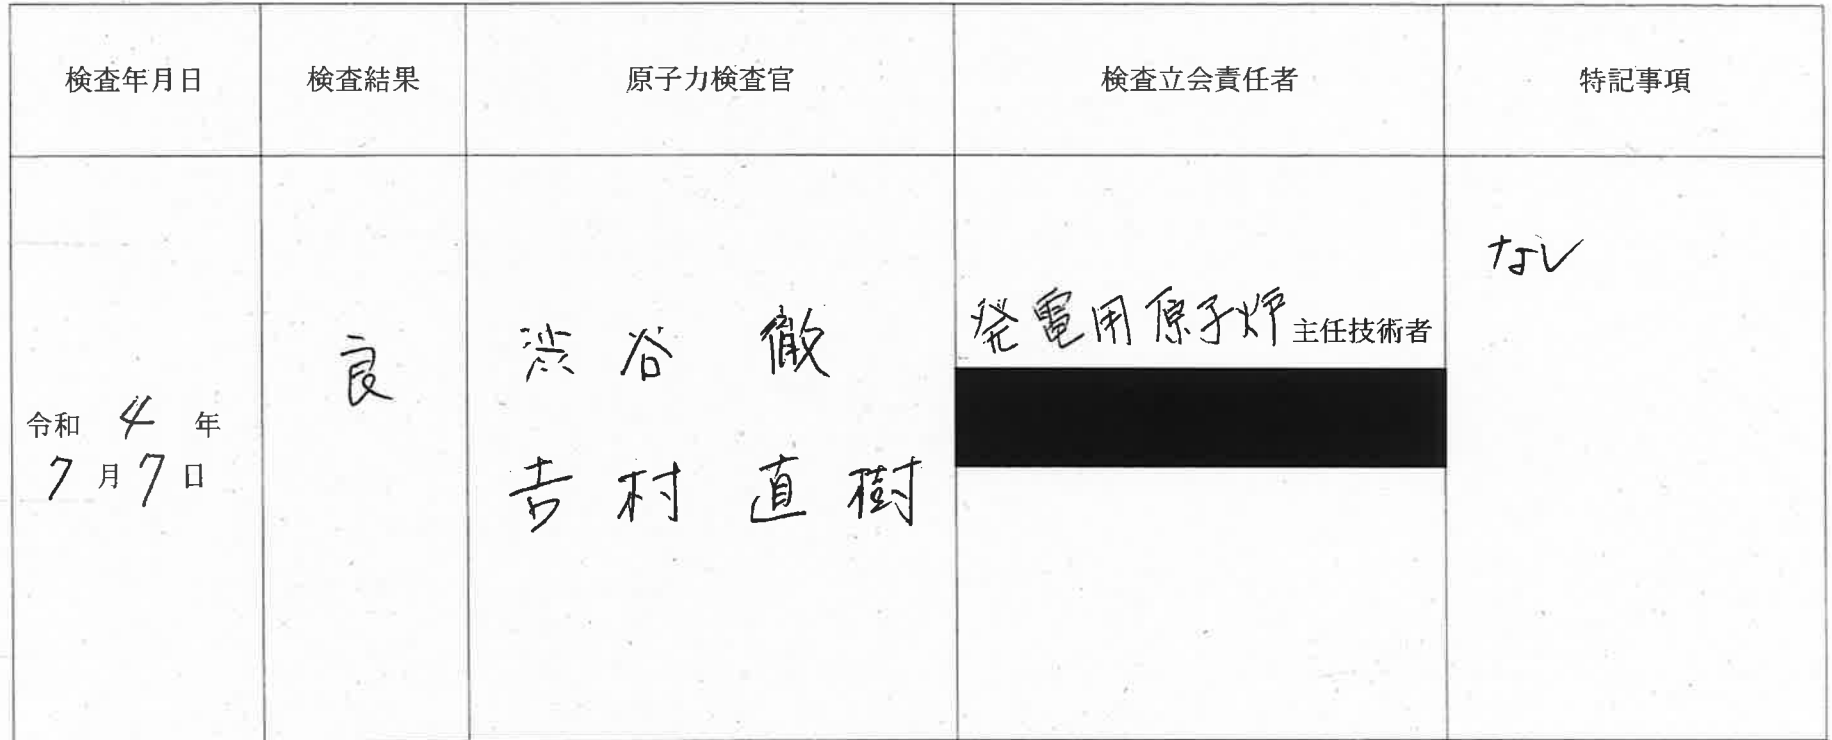 検査年月日 検査結果 原子力検査官 検査立会責任者 特記事項
令和 4 年
7月7日
良
渋谷 徹
吉村 直樹
発電用原子炉主任技術者
なし